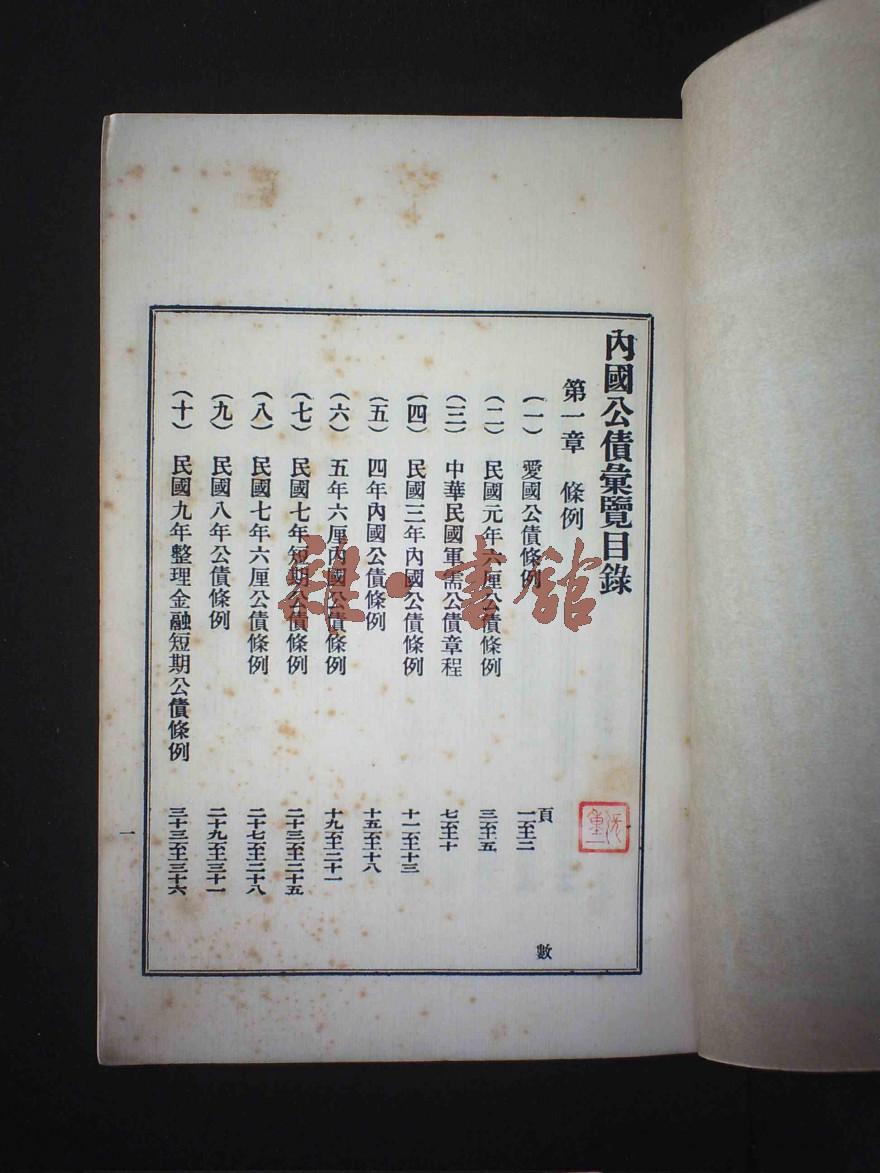 內國公債彙覽目錄
第一章 條例
頁數
(一) 愛國公債條例 一至二
(二) 民國元年六厘公債條例 三至五
(三) 中華民國軍需公債章程 七至十
(四) 民國三年內國公債條例 十一至十三
(五) 四年內國公債條例 十五至十八
(六) 五年六厘內國公債條例 十九至二十一
(七) 民國七年短期公債條例 二十三至二十五
(八) 民國七年六厘公債條例 二十七至二十八
(九) 民國八年公債條例 二十九至三十一
(十) 民國九年整理金融短期公債條例 三十三至三十六
一
雜·書館